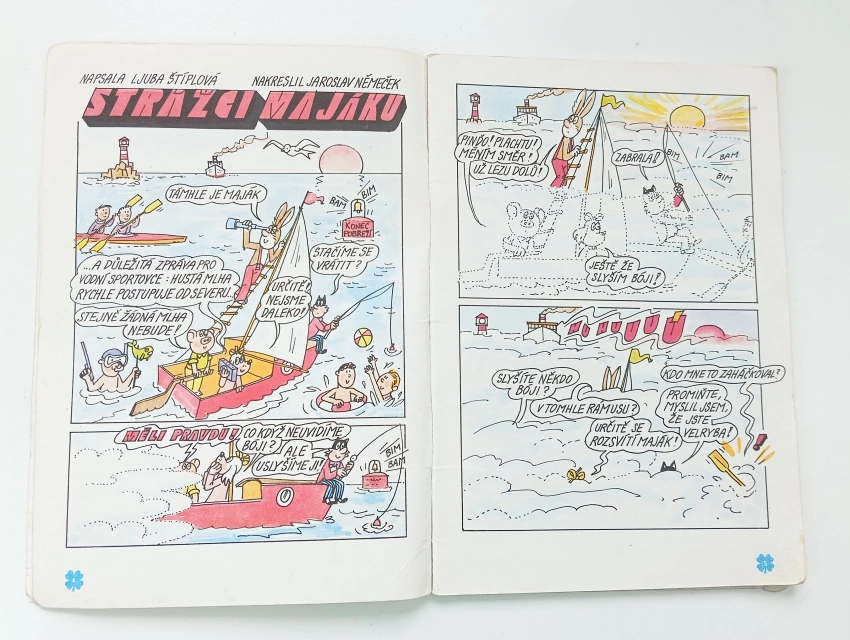 NAPSALA LJUBA ŠTÍPLOVÁ
NAKRESLIL JAROSLAV NĚMEČEK
STRÁŽCI MAJÁKU
TÁMHLE JE MAJÁK
BAM
BIM
KONEC
POBŘEŽÍ
...A DŮLEŽITÁ ZPRÁVA PRO
VODNÍ SPORTOVCE: HUSTÁ MLHA
RYCHLE POSTUPUJE OD SEVERU..
STAČÍME SE
VRÁTIT?
URČITĚ!
NEJSME
DALEKO!
STEJNĚ ŽÁDNÁ MLHA
NEBUDE!
MĚLI PRAVDU!
CO KDYŽ NEUVIDÍME
BÓJI?
ALE
USLYŠÍME JI!
BIM
BAM
PINĎO! PLACHTU!
MĚNÍM SMĚR!
UŽ LEZU DOLŮ!
ZABRALA!
BIM
BAM
BIM
JEŠTĚ ŽE
SLYŠÍM BÓJI!
SLYŠÍTE NĚKDO
BÓJI?
V TOMHLE RAMUSU?
URČITĚ SE
ROZSVÍTÍ MAJÁK!
KDO MNE TO ZAHÁČKOVAL?
PROMIŇTE,
MYSLIL JSEM,
ŽE JSTE
VELRYBA!
!